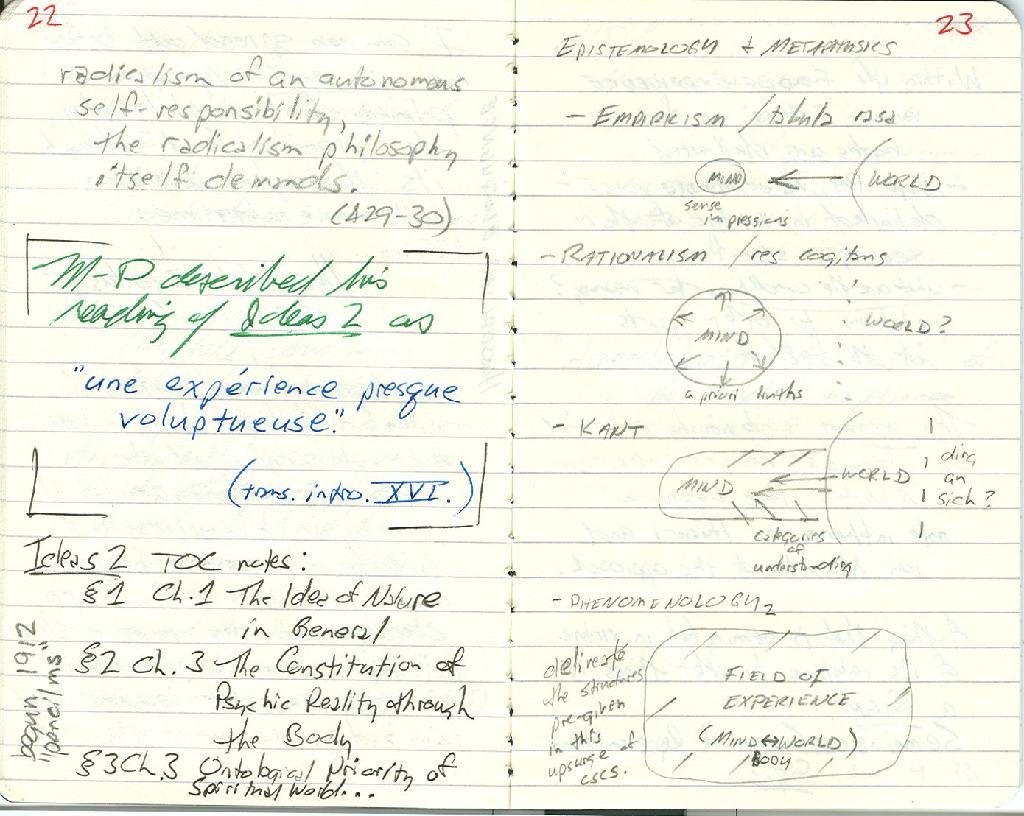 22
radicalism of an autonomous
self-responsibility,
the radicalism philosophy
itself demands.
(429-30)
M-P described his
reading of Ideas 2 as
"une expérience presque
voluptueuse."
(trans. intro. XVI.)
Ideas 2 TOC notes:
§1 Ch.1 The Idea of Nature
in General
§2 Ch. 3 The Constitution of
Psychic Reality through
the Body
§3 Ch.3 Ontological Priority of
Spiritual World...
begun 1912
"pencil ms"
23
EPISTEMOLOGY + METAPHYSICS
- EMPIRICISM / tabula rasa
MIND
WORLD
sense
impressions
- RATIONALISM / res cogitans
MIND
WORLD?
a priori truths
- KANT
MIND
WORLD
ding
an
sich?
categories
of
understanding
- PHENOMENOLOGY
delineate
the structures
pre-given
in this
upsurge of
cscs.
FIELD OF
EXPERIENCE
(MIND↔WORLD)
BODY